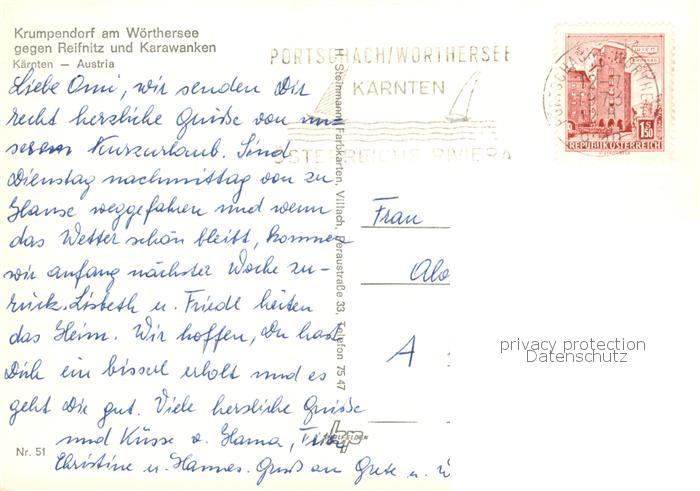 Krumpendorf am Wörthersee
gegen Reifnitz und Karawanken
Kärnten — Austria
Liebe Omi, wir senden Dir
recht herzliche Grüße von un-
serem Kurzurlaub. Sind
Dienstag nachmittag von zu
Hause weggefahren und wenn
das Wetter schön bleibt, kommen
wir anfang nächster Woche zu-
rück. Lisbeth u. Friedl hüten
das Heim. Wir hoffen, Du hast
Dich ein bisserl erholt und es
geht Dir gut. Viele herzliche Grüße
und Küsse v. Hanna,
Christine u. Hannes. Gruß an Grete u.
Nr. 51
H. Steinmann, Farbkarten, Villach, Peraustraße 33, Telefon 75 47
PÖRTSCHACH/WÖRTHERSEE
KÄRNTEN
ÖSTERREICHS RIVIERA
WIEN
1.50
REPUBLIK ÖSTERREICH
Frau
A
privacy protection
Datenschutz